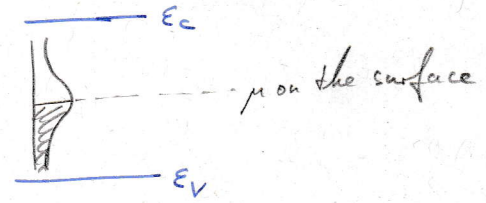 ε_c
μ on the surface
ε_V